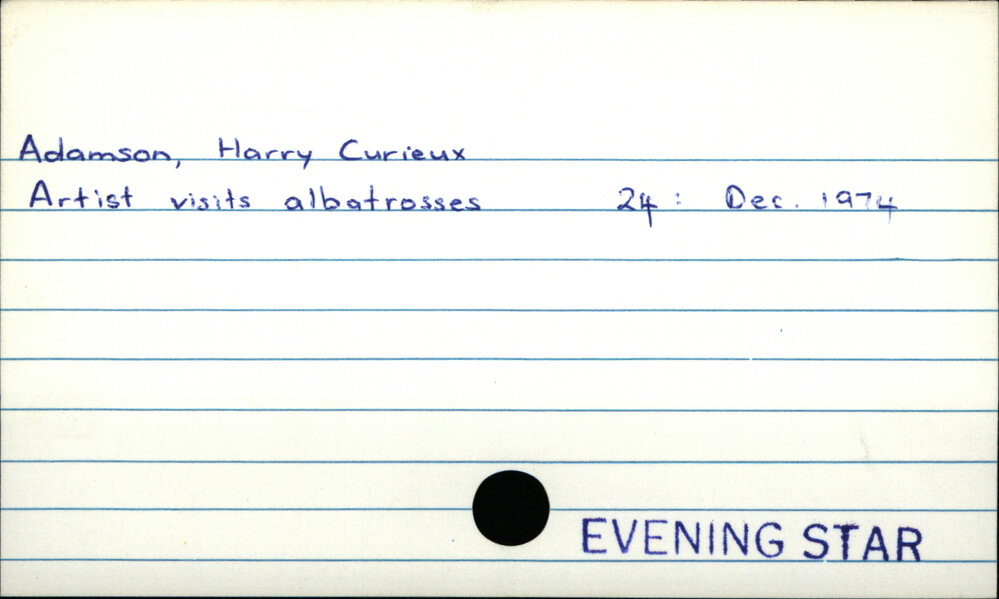 Adamson, Harry Curieux
Artist visits albatrosses 24: Dec. 1974
EVENING STAR